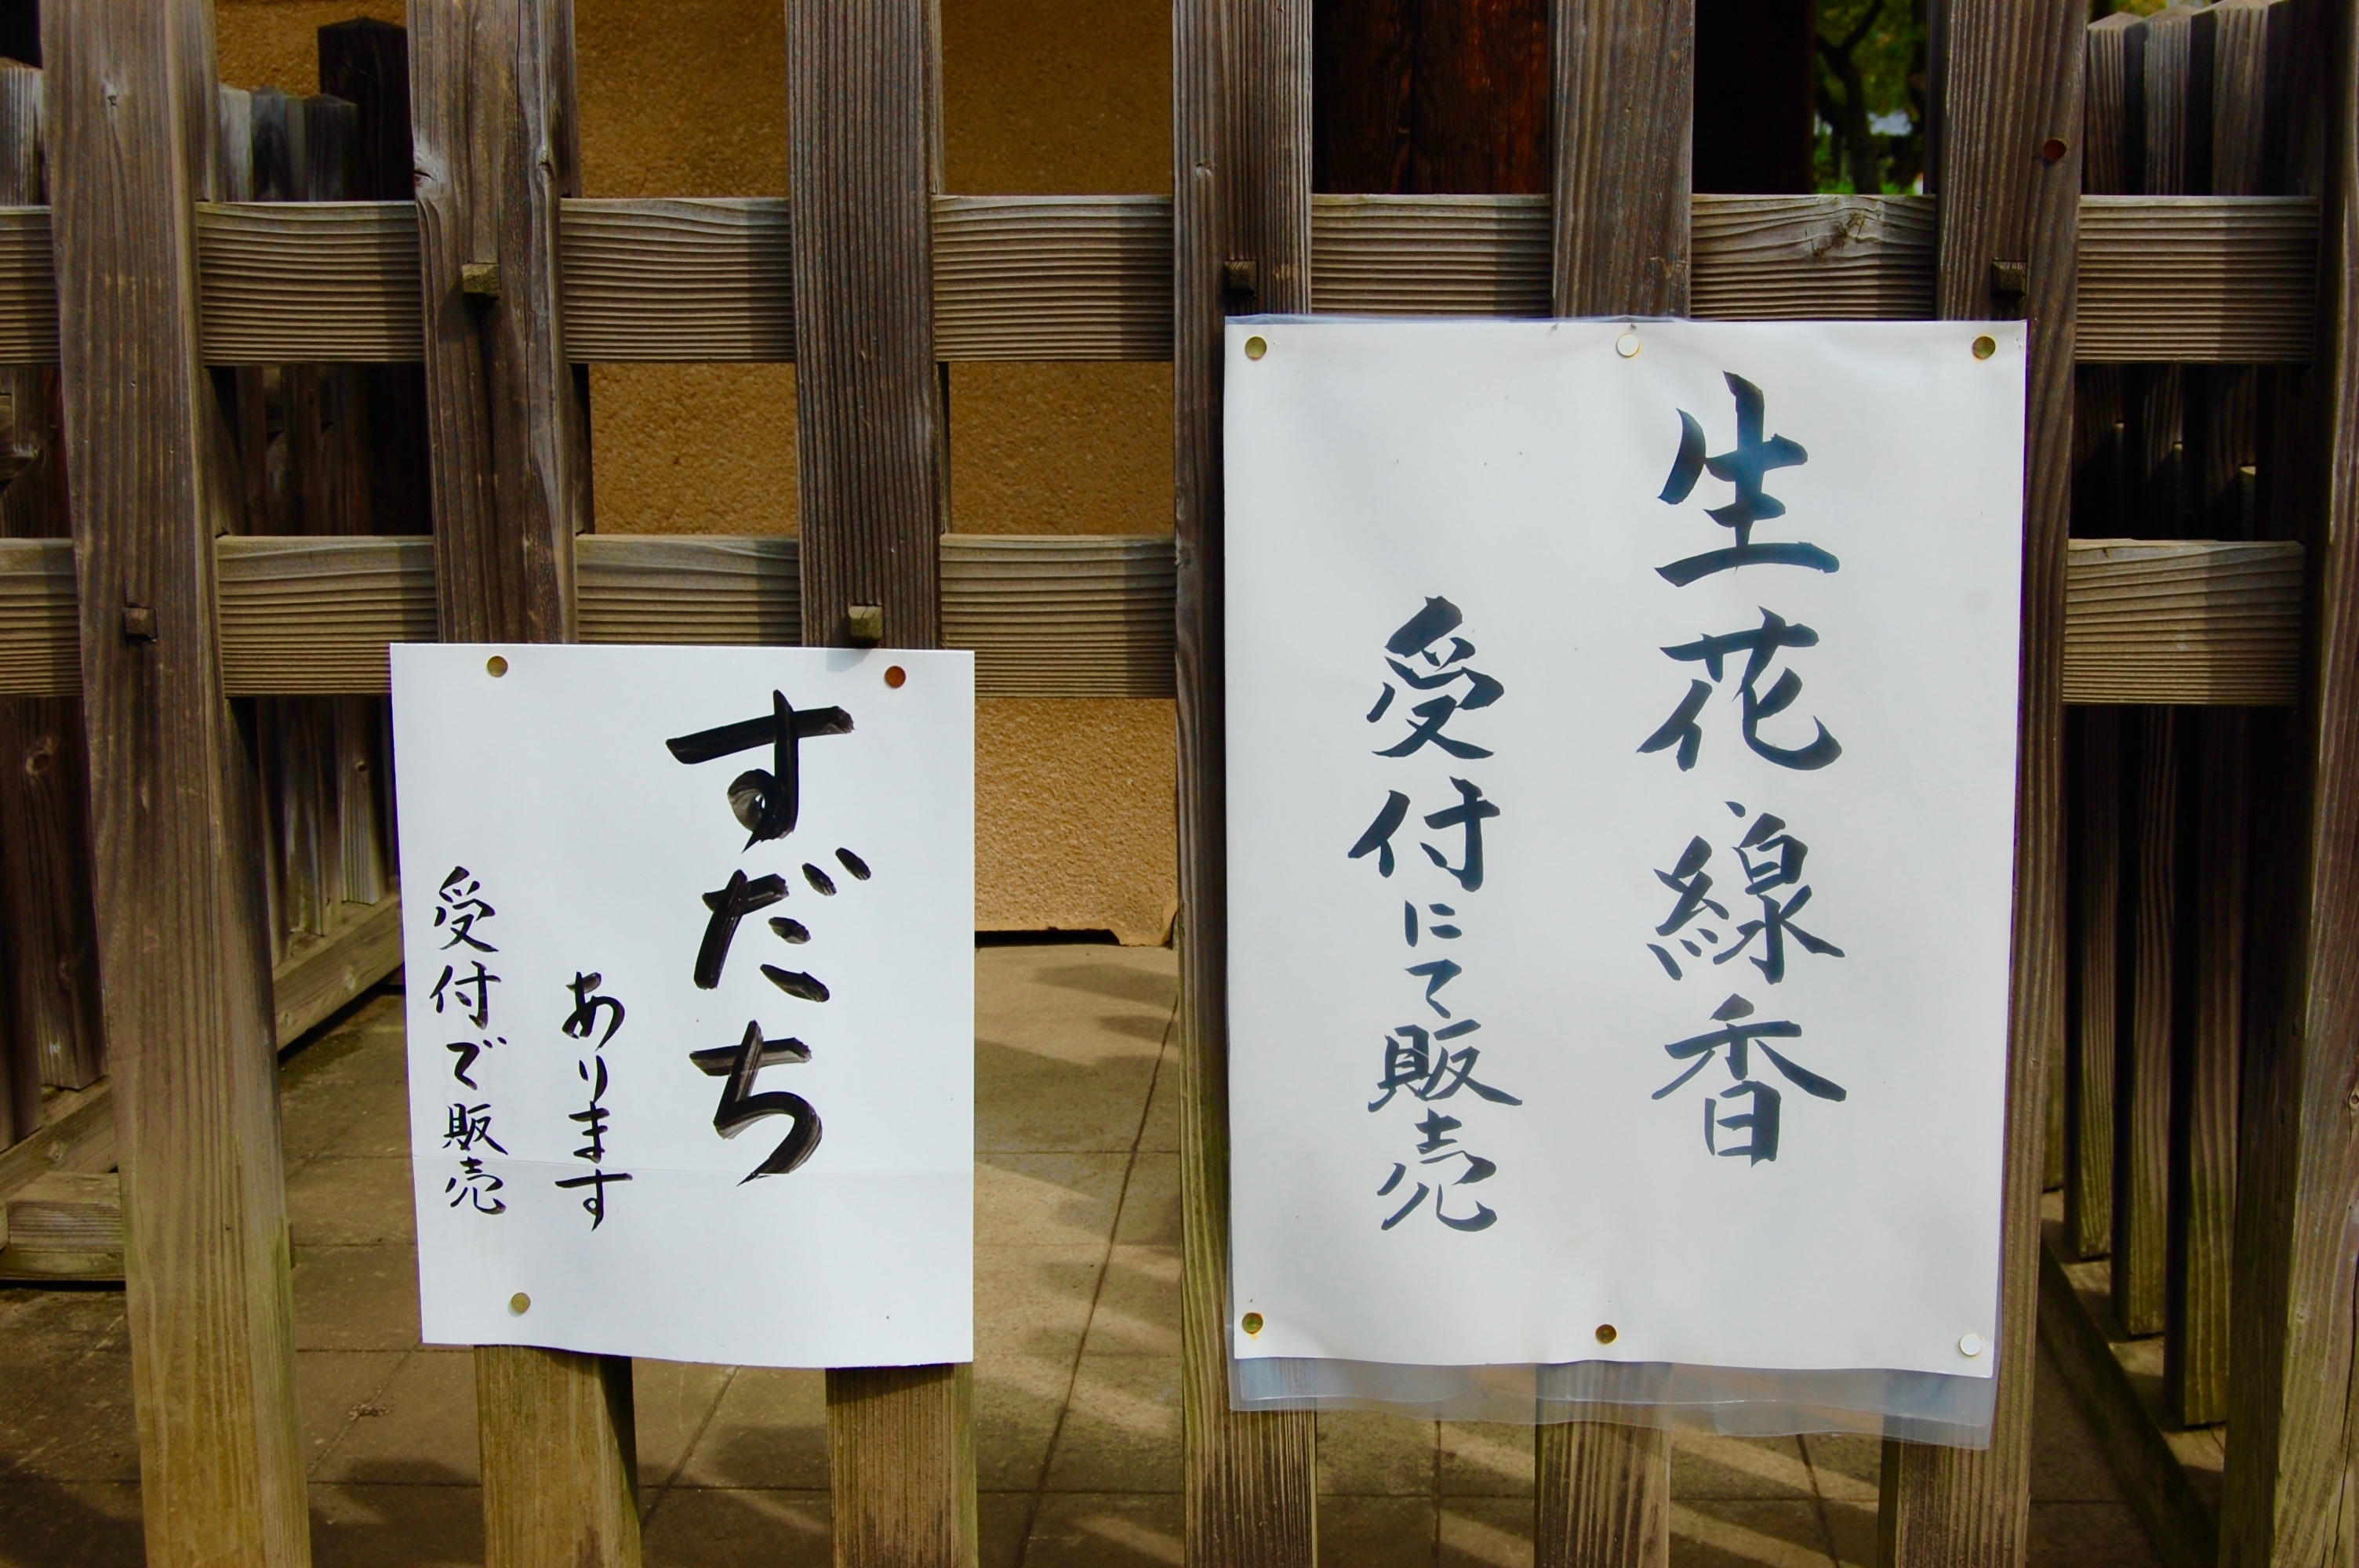 生花線香
受付にて販売
すだち
あります
受付で販売